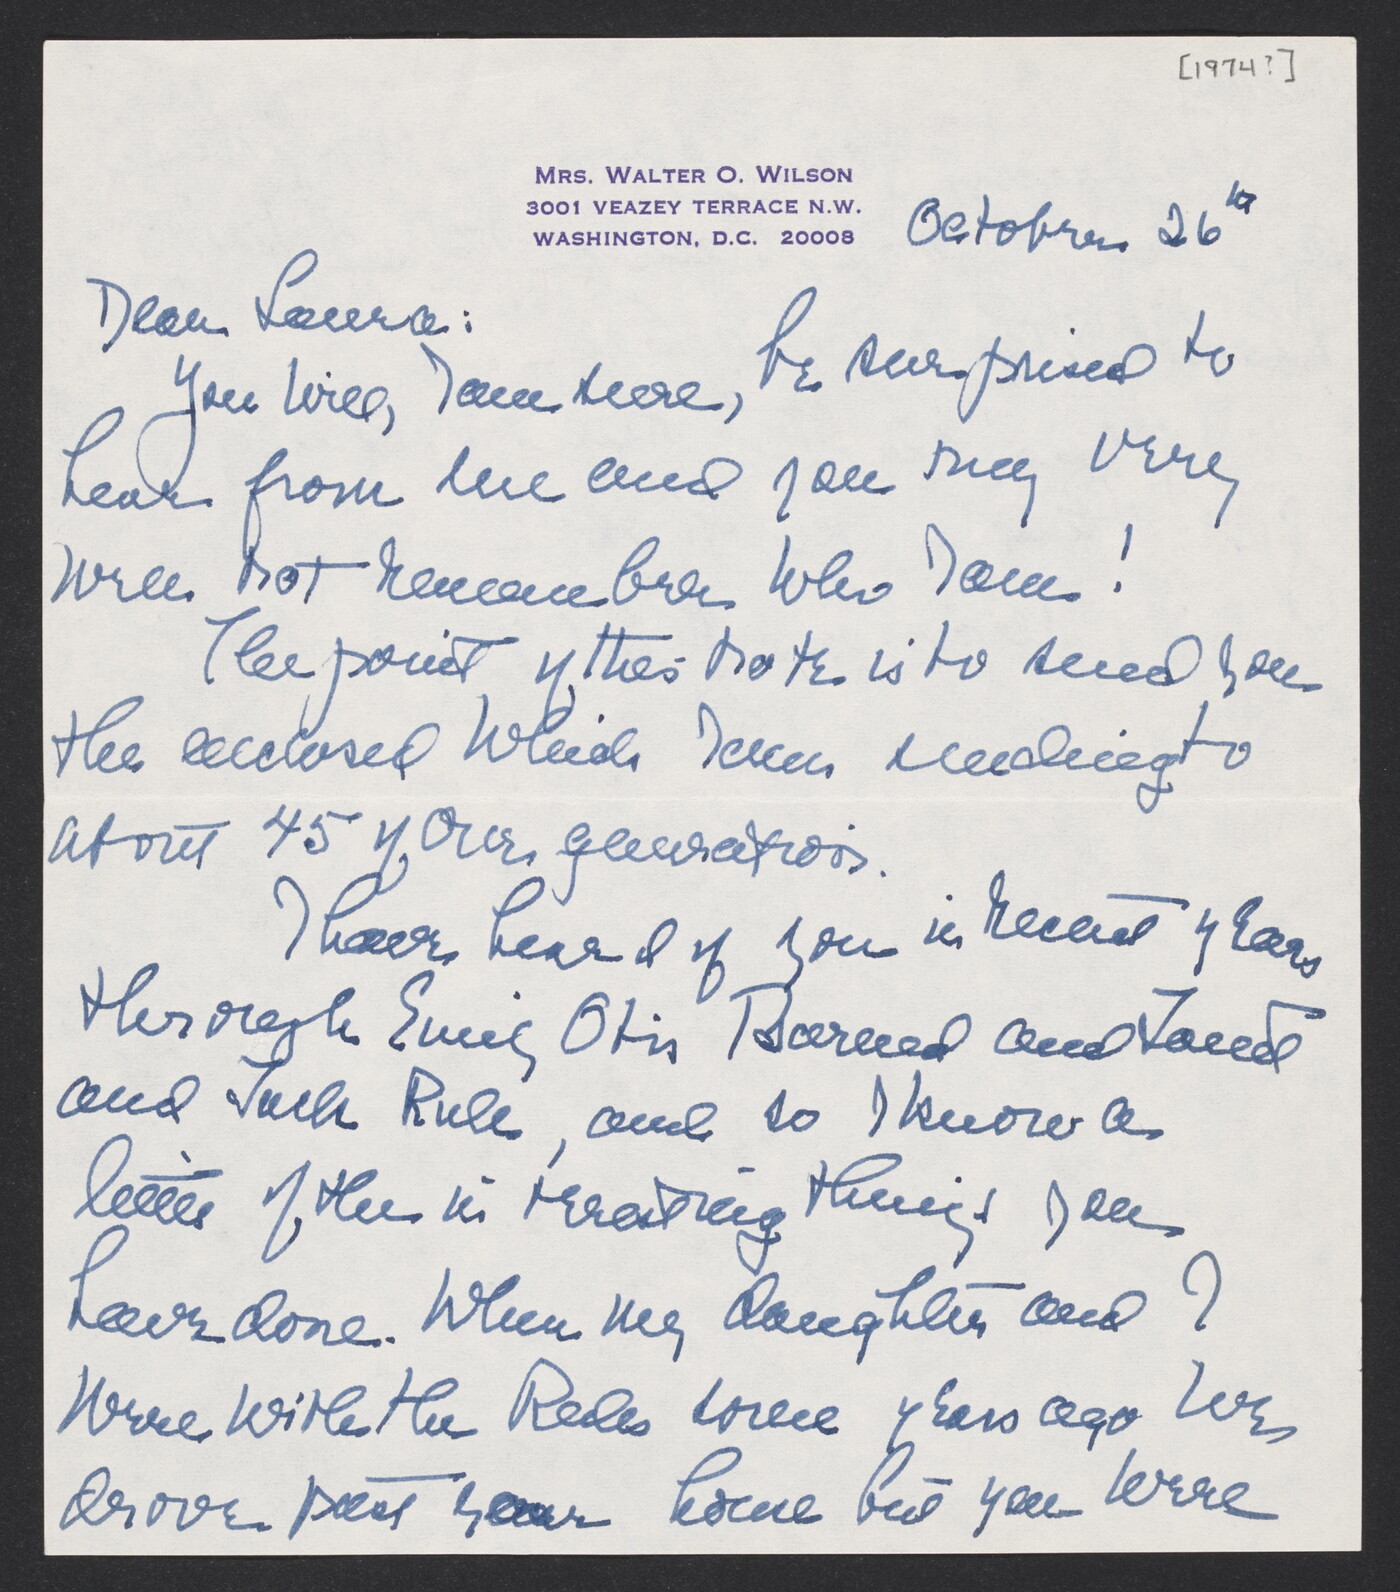 [1974?]
MRS. WALTER O. WILSON
3001 VEAZEY TERRACE N.W.
WASHINGTON, D.C. 20008
October 26th
Dear Laura:
You will, I am sure, be surprised to
hear from me and you may very
well not remember who I am!
The point of this note is to send you
the enclosed which I am sending to
about 45 of our generation.
I have heard of you in recent years
through Emily Otis Barnes and Janet
and Jack Rule, and so I know a
little of the interesting things you
have done. When my daughter and I
were with the Rules some years ago we
drove past your home but you were